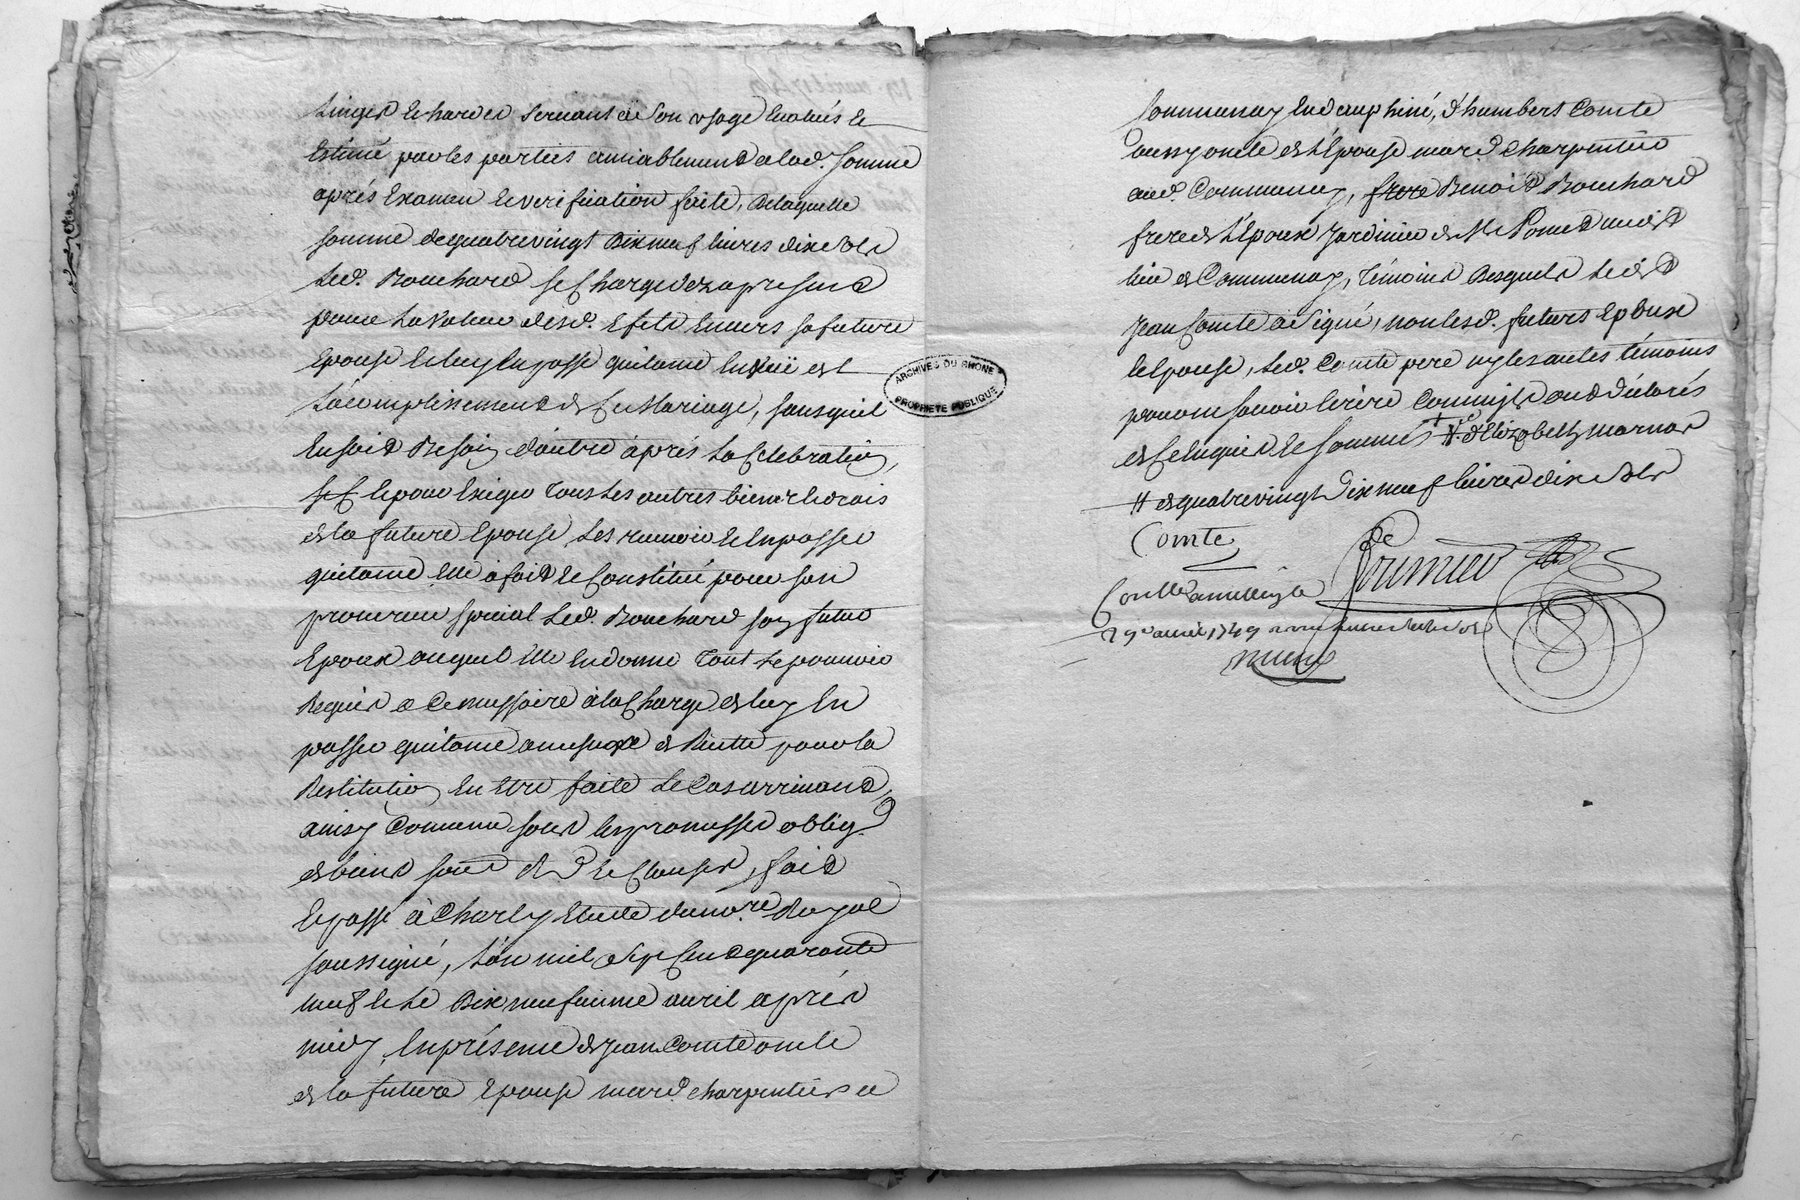 Linges et hardes servant à son usage Evalués et
Estimé par les parties amiablement à lad. somme
aprés Examen et verification faite, De laquelle
somme de quatrevingt Dixneuf livres dix sols
Led. Bouchard se Charge dez apresent
pour La Valeur desd. Effets Envers sa future
Epouse et luy En passe quitance En vuë et
L'acomplissement de Ce Mariage, sans quil
En soit Besoin d'autre aprés La Celebration,
Et pour Exiger Tous Les autres biens et droits
de la future Epouse, Les recevoir et En passer
quitance Elle à fait et Constitué pour son
procureur special Led. Bouchard son futur
Epoux auquel Elle En donne Tout Le pouvoir
Requis et Necessaire à la Charge de luy En
passer quitance a mesure de Recette pour la
Restitution En Etre faite Le Cas arrivant,
ainsy Convenu sous les promesses oblig.
de biens soud. et Clauses, fait
Et passé à Charly Etude du no.re Royal
soussigné, L'an mil sept Cent quarante
neuf et Le Dix neufieme avril aprés
midy, En présence de Jean Comte oncle
de la future Epouse mard. charpentier a
Communay En dauphiné, d'humbert Comte
aussy oncle de L'Epouse mard. Charpentier
aud. Communay, frere Benoit Bouchard
frere de L'Epoux Jardinier de Mr
lieu de Communay, Témoins Desquels Led.
Jean Comte à signé, non lesd. futurs Epoux
et Epouse, Led. Comte pere ny les autres témoins
pour ne savoir Ecrire Comme ils ont déclarés
de Ce Enquis et Sommés d'Elizabeth marnas
# de quatrevingt Dix neuf livres dix sols
Comte
Controllé a
29e avril 1749
ARCHIVES DU RHONE
PROPRIÉTÉ PUBLIQUE